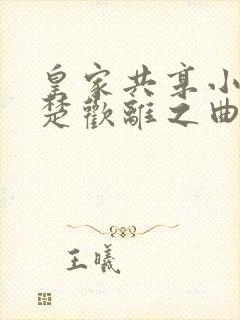 皇家共享小
楚歡離之曲
王曦